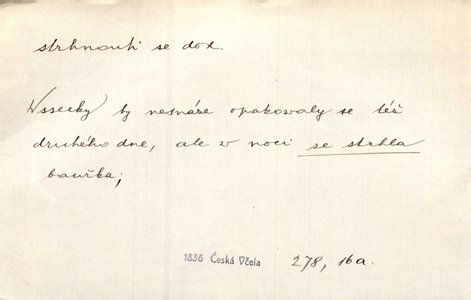 strhnouti se dok.
Wssecky ty nesnáze opakowaly se též
druhého dne, ale w noci se strhla
bauřka;
1836 Česká Včela 278, 16a.